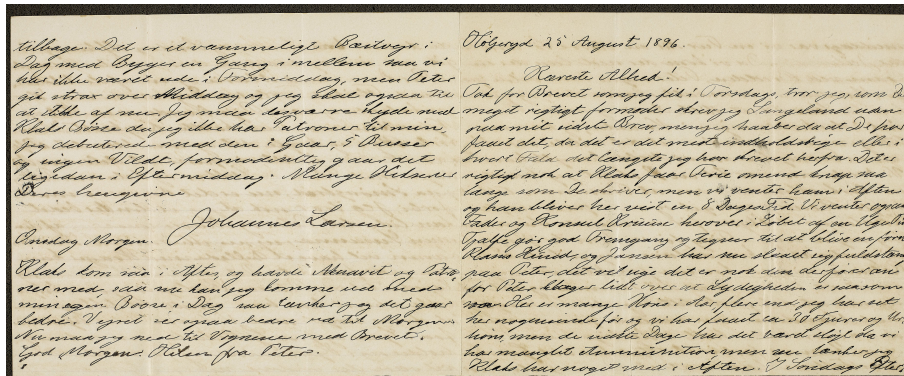 tilbage. Det er et væmmeligt Bæitvejr i
Dag med Byger en Gang imellem saa vi
har ikke været ude i Formiddag, men Peter
gik strax over Middag og jeg skal ogsaa til
at ikke af nu. Jeg maa desværre skyde med
Klaks Bøsse da jeg ikke har Patroner til min
jeg debuterede med den i Gaar, 5 Busser
og ingen Vildt, formodentlig gaar det
ligedan i Eftermiddag. Mange Hilsener
Deres hengivne
Johannes Larsen.
Onsdag Morgen.
Klaks kom saa i Aftes og havde Akvavit og Patro
ner med saa nu kan jeg komme ud med
min egen Bøsse i Dag saa tænker jeg det gaar
bedre. Vejret er ogsaa bedre ud til Morgen.
Nu maa jeg ned til Vognene med Brevet.
God Morgen. Hilsen fra Peter.
Høljeryd 25 August 1896.
Kæreste Alhed!
Tak for Brevet som jeg fik i Torsdags, tror jeg, som De
meget rigtigt formoder skrev jeg Langeland uden
paa mit sidste Brev, men jeg haaber da at De har
faaet det, da det er det mest indholdsrige eller i
hvert Fald det længste jeg har skrevet herfra. Det er
rigtigt nok at Klaks faar Ferie omend knap saa
længe som De skriver, men vi venter ham i Aften
og han bliver her vist en 8 Dages Tid. Vi venter ogsaa
Fader og Konsul Kruuse herover i Løbet af en Uges Tid
gør god Fremgang og tegner til at blive en
Klaks Hund, og Jansen har nu slaaet sig fuldstændig
paa Peter, det vil sige det er nok den der foræres
for Peter klager lidt over at Lydigheden er saa som
saa. Her er mange Høns i Aar, flere end jeg har set
her nogensinde før og vi har skudt ca 30 Tjurer og Ur
høns, men de sidste Dage har det været sløjt da vi
har manglet Ammunition men nu tænker jeg
Klaks har noget med i Aften. I Søndags Efter,